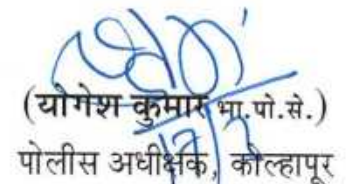 (योगेश कुमार भा.पो.से.)
पोलीस अधीक्षक, कोल्हापूर